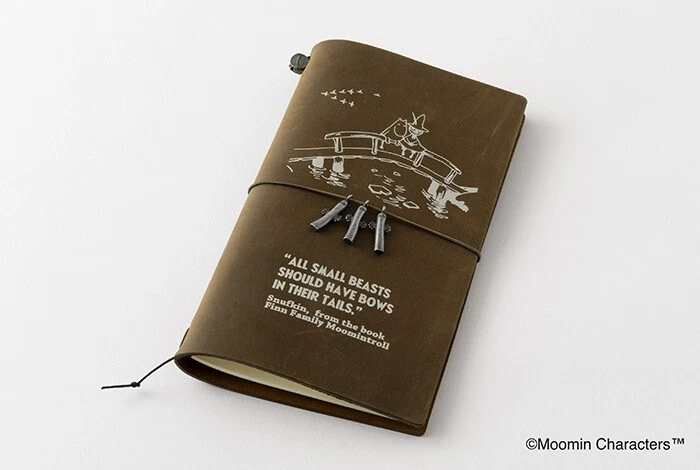 “ALL SMALL BEASTS
SHOULD HAVE BOWS
IN THEIR TAILS.”
Snufkin, from the book
Finn Family Moomintroll
©Moomin Characters™